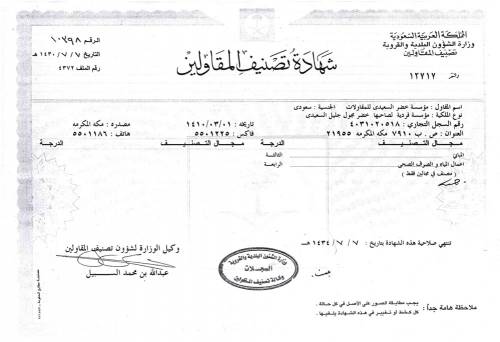 المملكة العربية السعودية
وزارة الشؤون البلدية والقروية
تصنيف المقاولين
١٢٢١٢
شهادة تصنيف المقاولين
الرقم ١٠٧٩٨
التاريخ ١٤٣٠/٧/٧ هـ
رقم الملف ٤٣٧٢
اسم المقاول : مؤسسة خضر السعيدى للمقاولات الجنسية : سعودى
نوع الملكية : مؤسسة فردية لصاحبها خضر جليل السعيدى
رقم السجل التجاري : ٤٠٣١٠٢٠٥١٨ تاريخه : ١٤١٠/٠٣/٠١ مصدره : مكه المكرمه
العنوان : ص . ب ٧٩١٠ مكه المكرمه ٢١٩٥٥ فاكس : ٥٥٠١٢٢٥ هاتف : ٥٥٠١١٨٦
مجال التصنيف الدرجة مجال التصنيف الدرجة
المباني الثالثة
اعمال المياه و الصرف الصحى الرابعة
( مصنف في مجالين فقط )
تنتهي صلاحية هذه الشهادة بتاريخ : ١٤٣٤/٧/٧ هـ
وكيل الوزارة لشؤون تصنيف المقاولين
عبدالله بن محمد السبيل
وزارة الشئون البلدية والقروية
السجلات
وكالة تصنيف المقاولين
ملاحظة هامة جداً :
يجب مطابقة الصور على الأصل في كل حالة .
كل كشط أو تغيير في هذه الشهادة يلغيها .